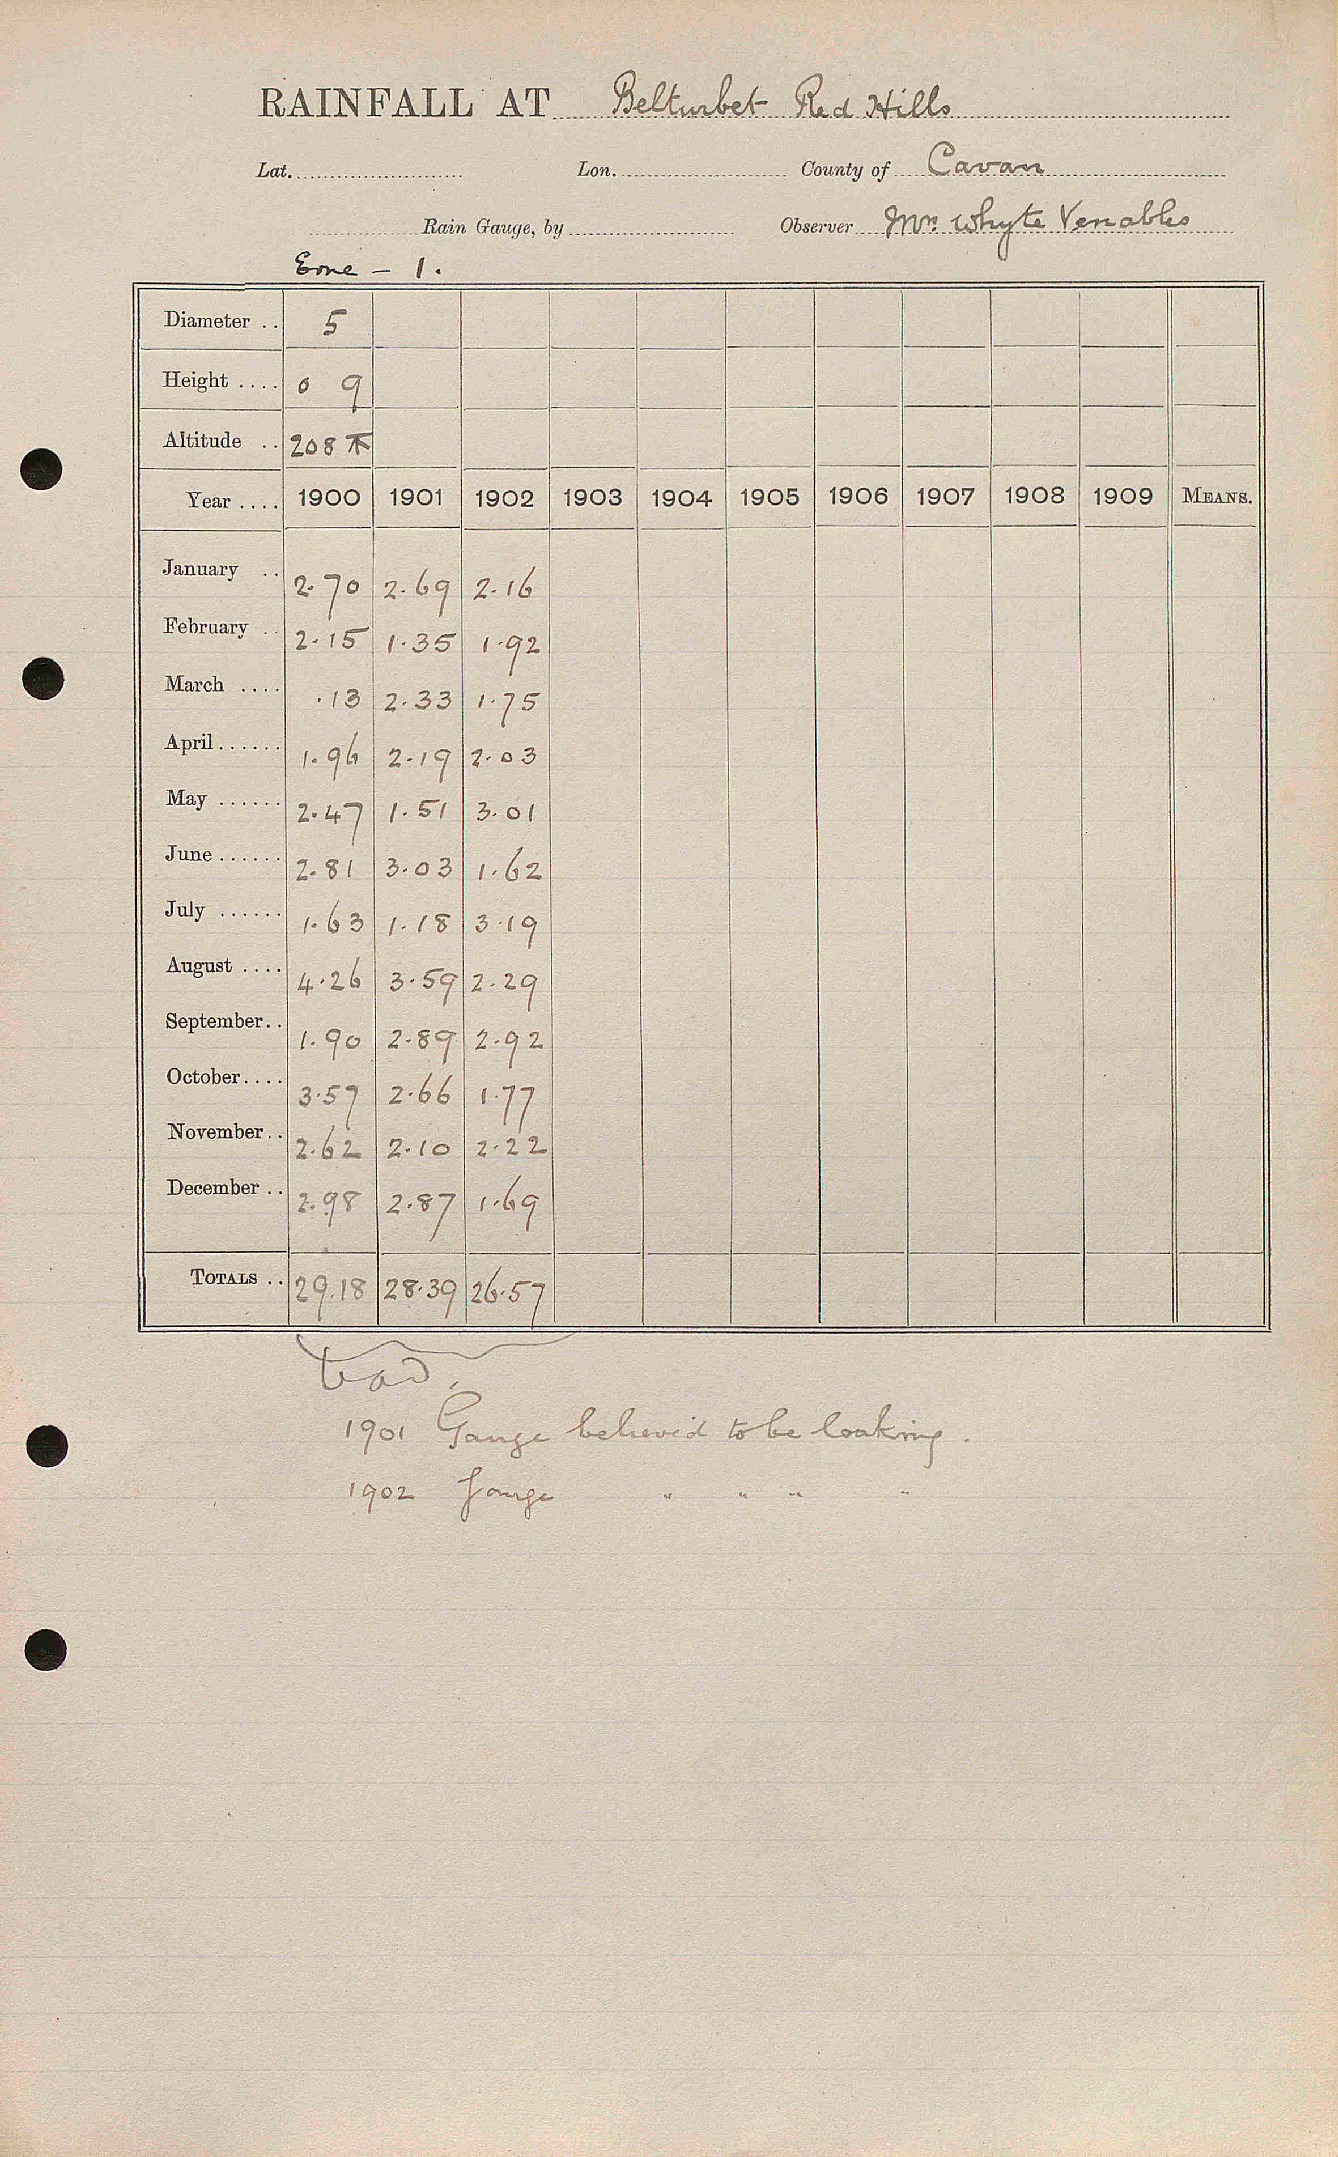 RAINFALL AT Belturbet Red Hills
Lat. Lon. County of Cavan
Rain Gauge, by Observer Mrs. Whyte Venables
Erne - 1.
Diameter .. 5
Height .... 0 9
Altitude .. 208
Year .... 1900 1901 1902 1903 1904 1905 1906 1907 1908 1909 MEANS.
January .. 2.70 2.69 2.16
February .. 2.15 1.35 1.92
March .... .13 2.33 1.75
April...... 1.96 2.19 2.03
May ...... 2.47 1.51 3.01
June...... 2.81 3.03 1.62
July ...... 1.63 1.18 3.19
August .... 4.26 3.59 2.29
September.. 1.90 2.89 2.92
October.... 3.57 2.66 1.77
November.. 2.62 2.10 2.22
December .. 2.98 2.87 1.69
TOTALS .. 29.18 28.39 26.57
bad.
1901 Gauge believed to be leaking.
1902 Gauge " " " "